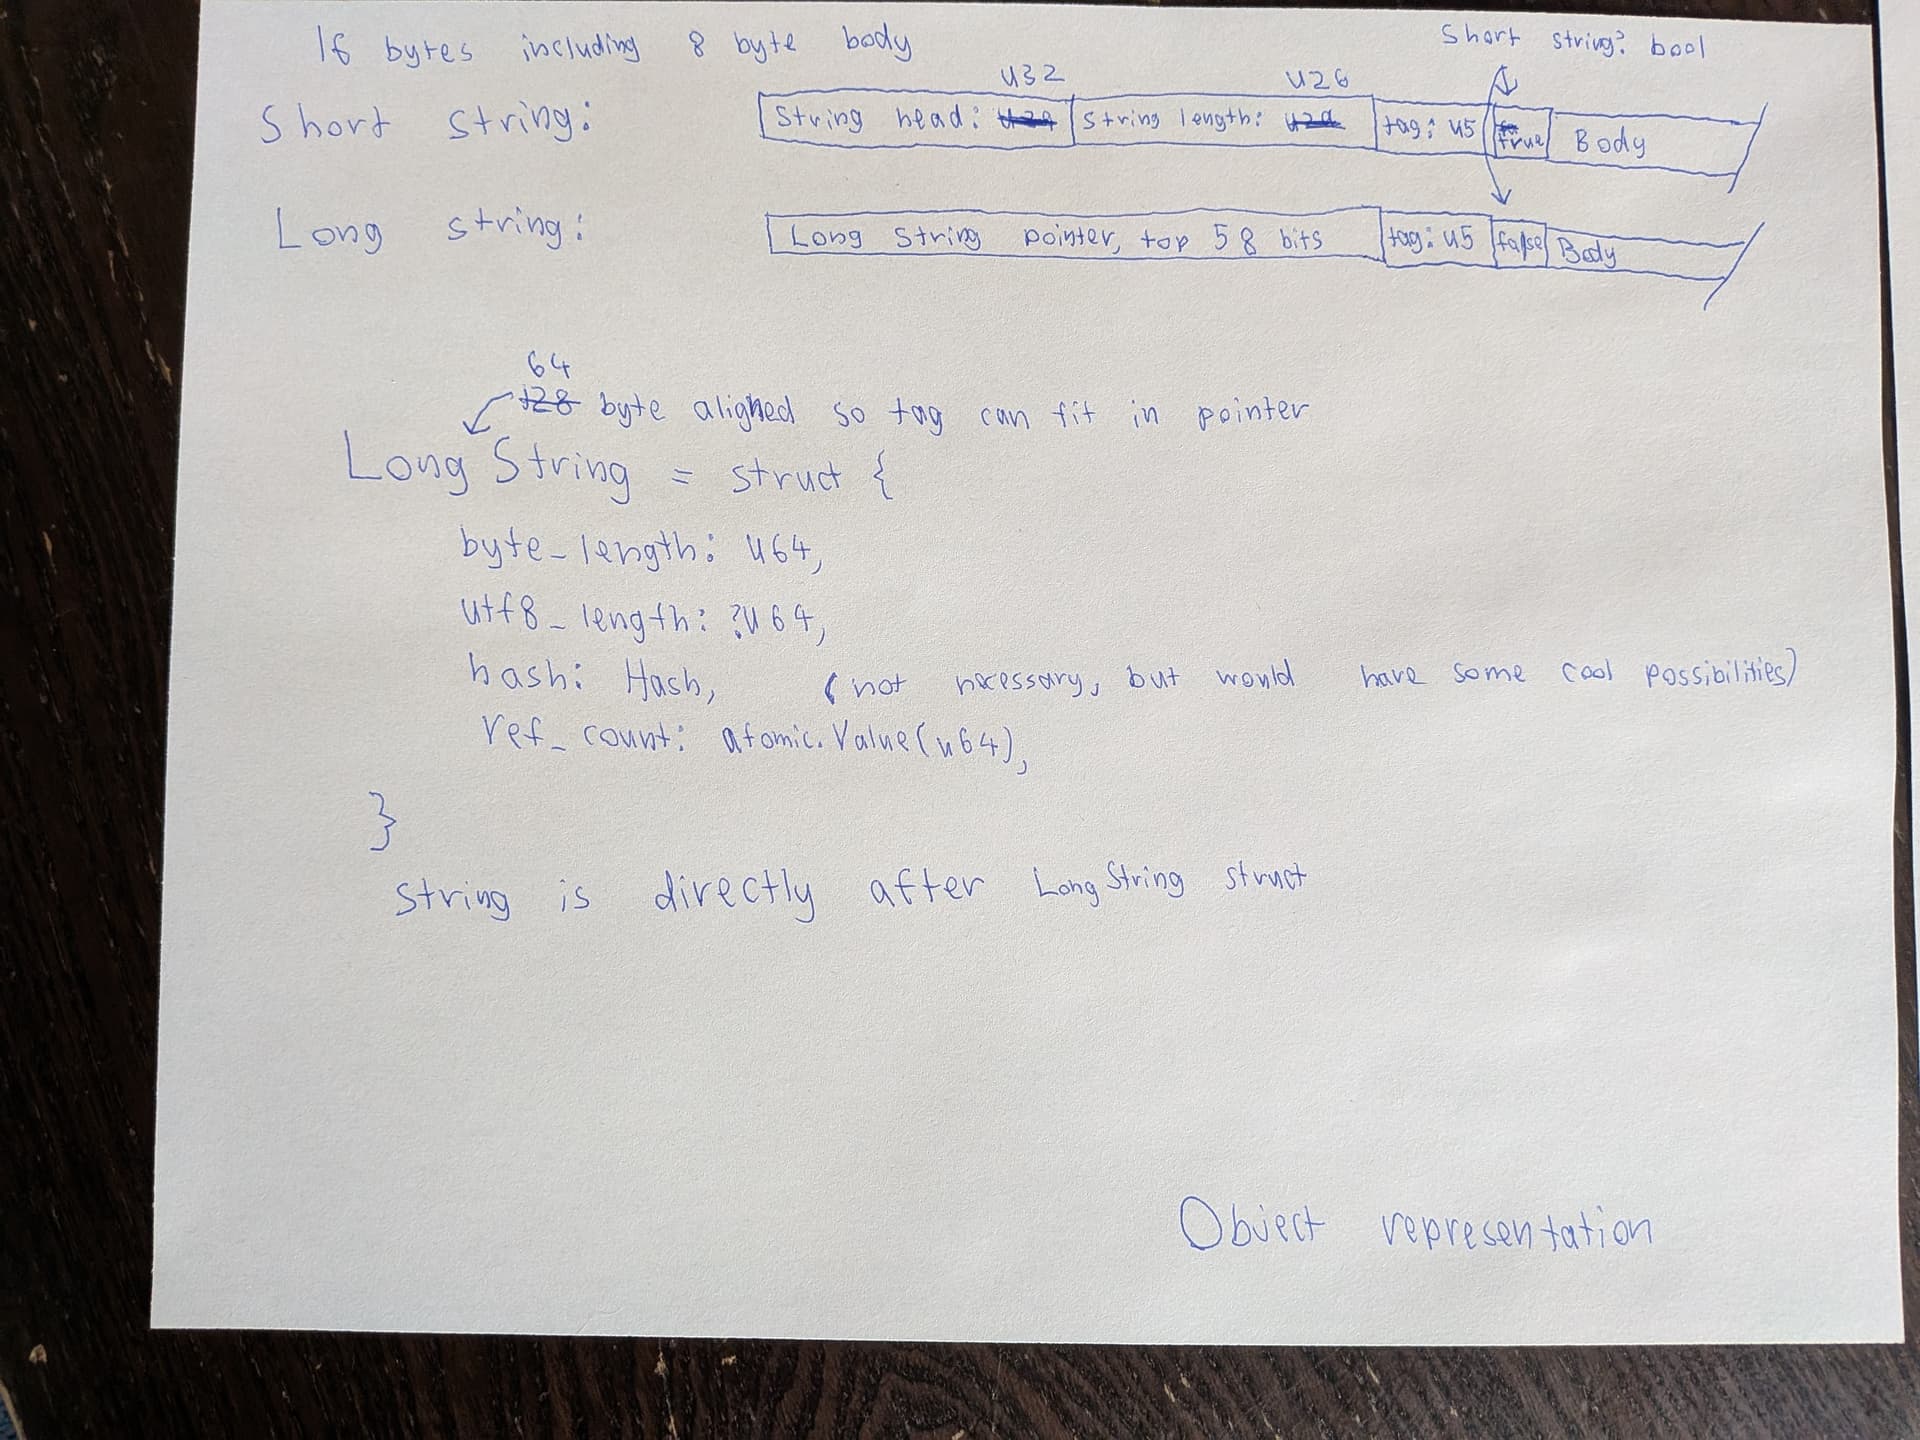 16 bytes including 8 byte body
Short string? bool
u32 u26
Short string: String head: String length: tag: u5 true Body
Long string: Long String pointer, top 58 bits tag: u5 false Body
64
128 byte aligned so tag can fit in pointer
Long String = struct {
byte_length: u64,
utf8_length: ?u64,
hash: Hash, (not necessary, but would have some cool possibilities)
ref_count: atomic.Value(u64),
}
string is directly after Long String struct
Object representation